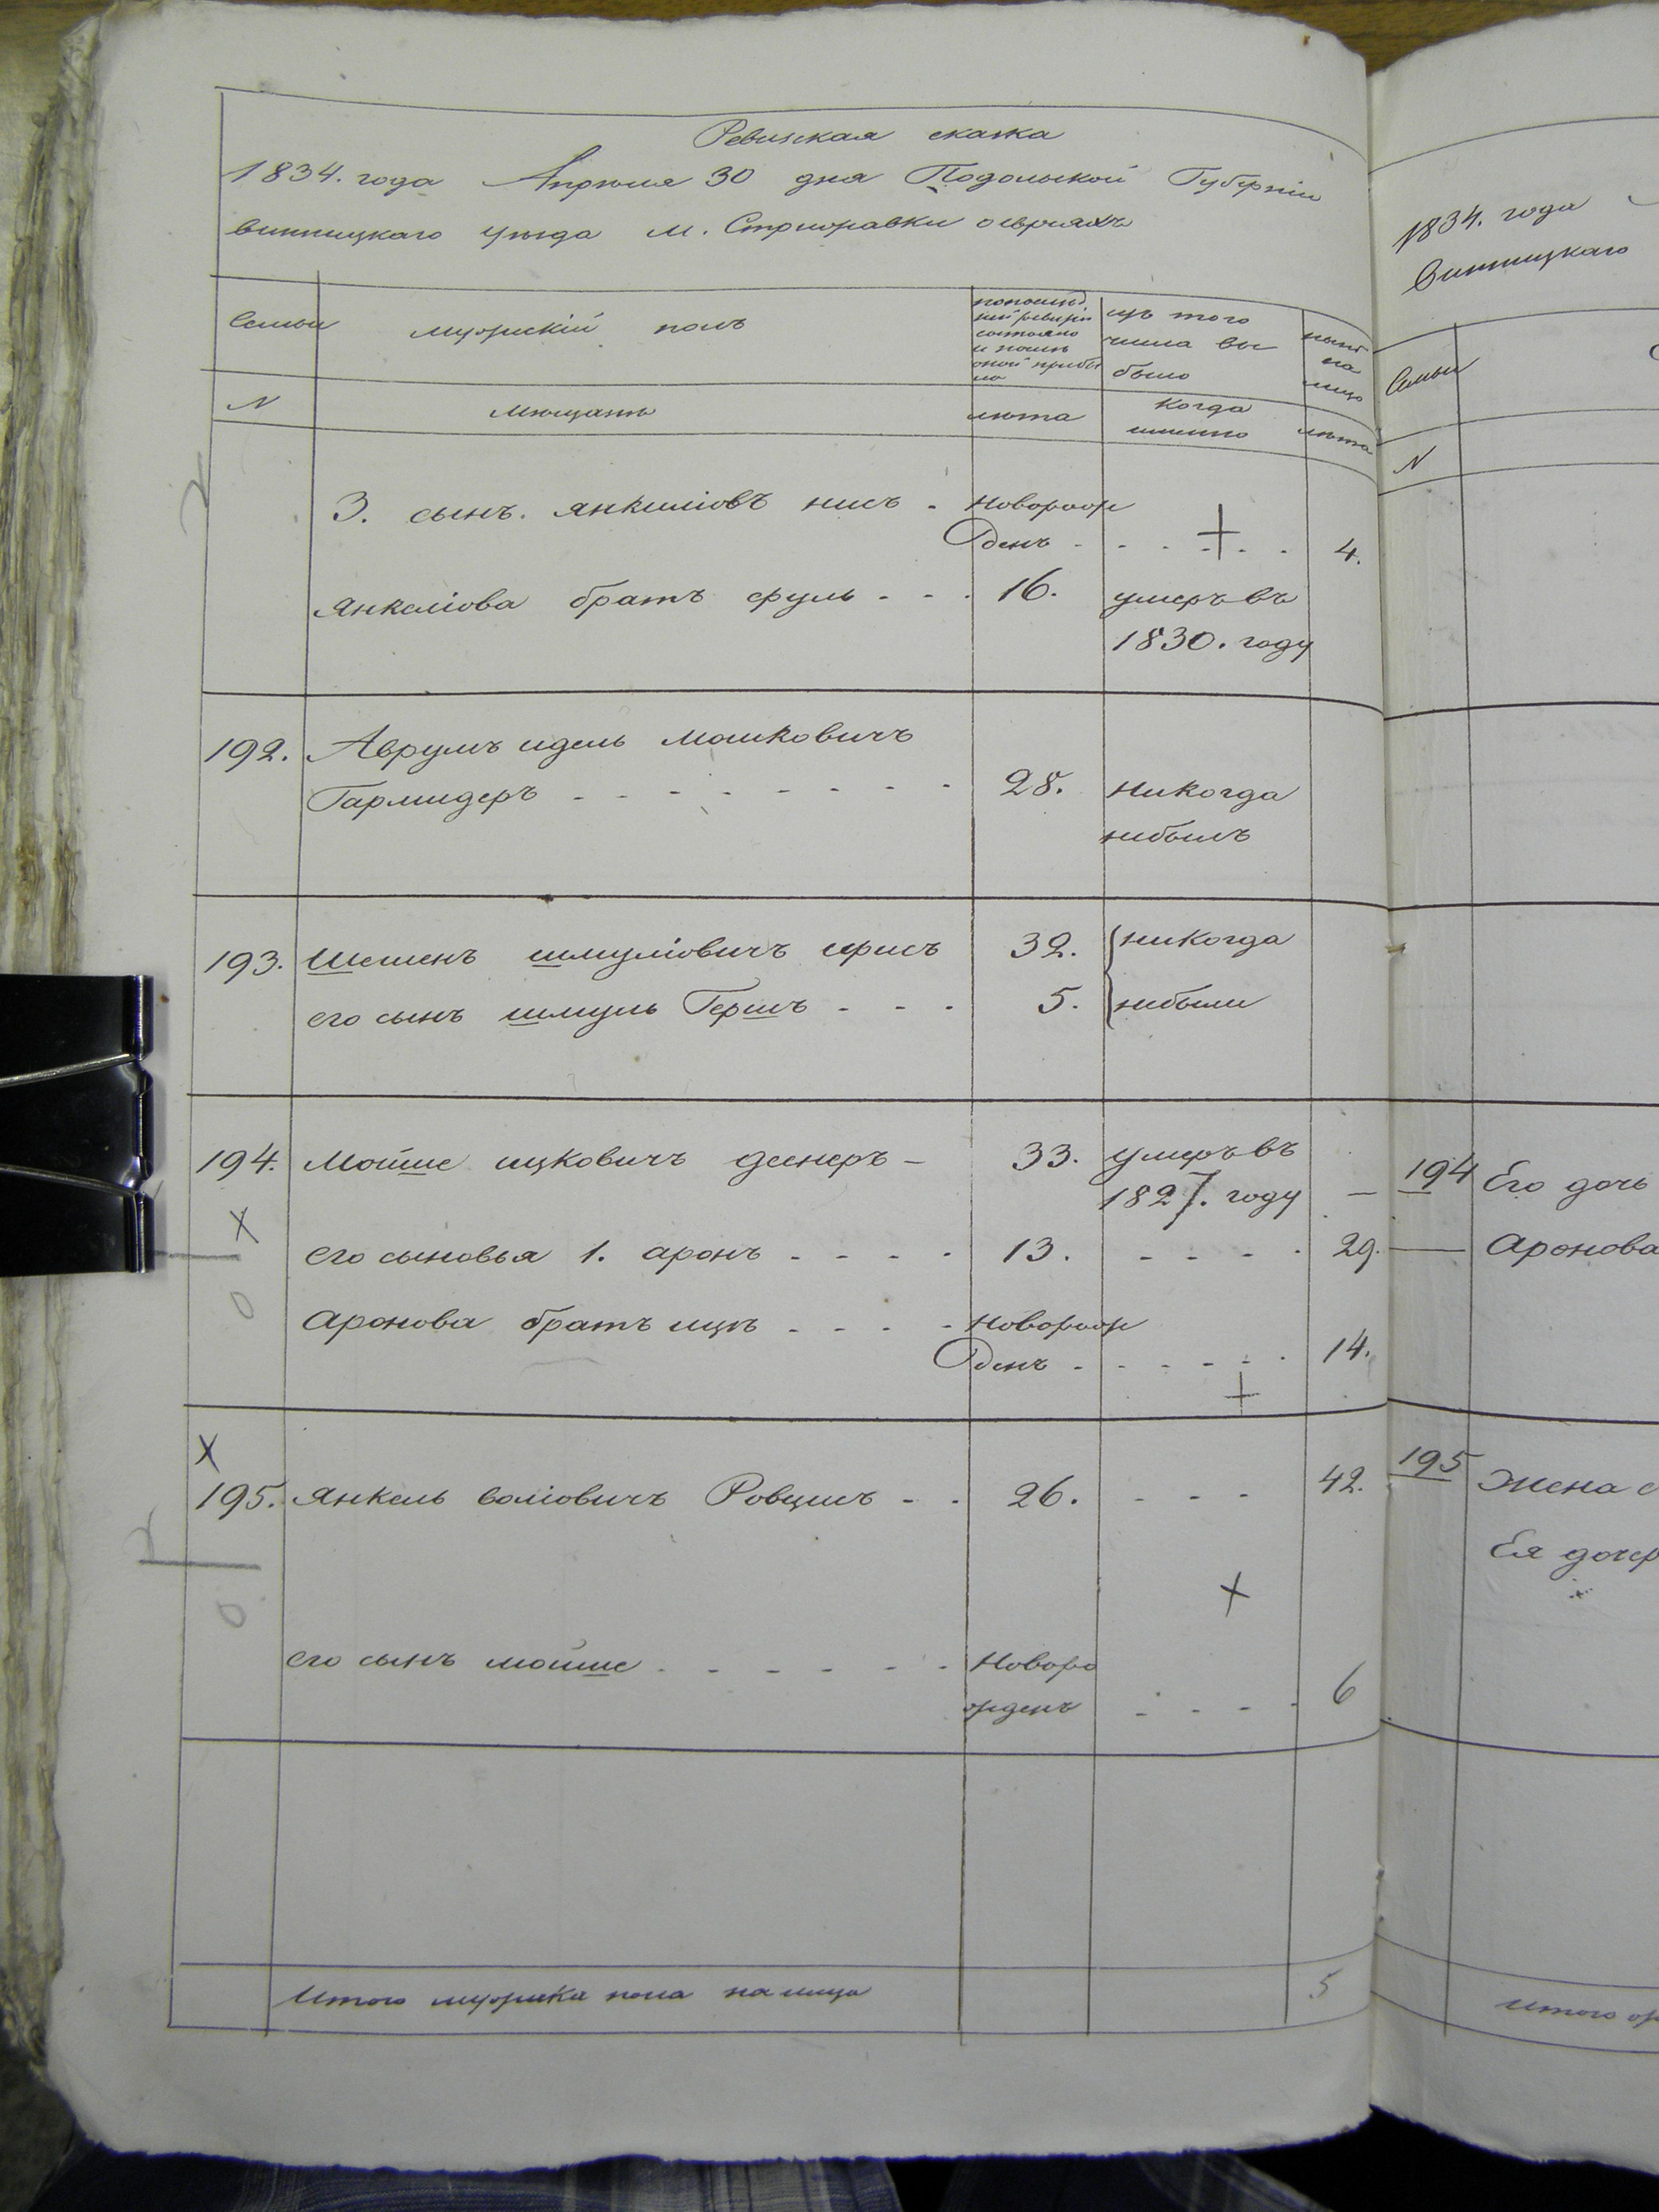 Ревизская скаска
1834. года Апреля 30 дня Подольской Губерніи
винницкаго уезда м. Стрижавки о евреяхъ
Семьи
мужескій полъ
по последней ревизіи состояло и после оной прибыло
изъ того числа выбыло
ныне на лицо
N
мещане
лета
когда именно
лета
3. сынъ. янкеліовъ нисъ . новорож
денъ - - - - - 4.
янкеліова братъ сруль - - . 16. умеръ въ
1830. году
192. Аврумъ идель мошковичъ
Гармидеръ - - - - - - - - 28. никогда
небылъ
193. шлиенъ шмуліовичъ ирисъ 32. никогда
его сынъ шмуль Гершъ - - - 5. небыли
194. мойше ицковичъ деенеръ - 33. умеръ въ
1827. году —
его сыновья 1. аронъ - - - - 13. - - - - 29.
аронова братъ ицъ - - - - новорож
денъ - - - - - 14.
195. янкель воліовичъ Ровцисъ - - 26. - - - 42.
его сынъ мойше - - - - - - новоро
жденъ - - - - 6
Итого мужска пола на лицо 5
1834. года
Винницкаго
Семьи
N
194 Его дочь
— аронова
195 Жена е
Ея дочер
итого ж